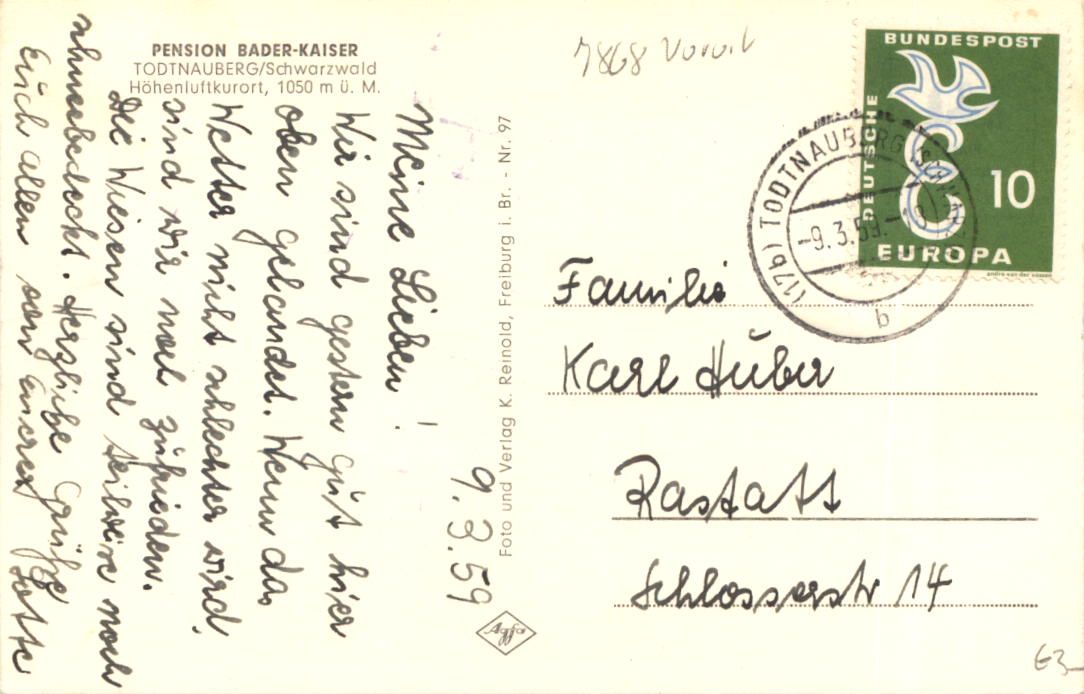 PENSION BADER-KAISER
TODTNAUBERG/Schwarzwald
Höhenluftkurort, 1050 m ü. M.
9.3.59
Meine Lieben!
Wir sind gestern gut hier
oben gelandet. Wenn das
Wetter nicht schlechter wird,
sind wir wohl zufrieden.
Die Wiesen sind teilweise noch
schneebedeckt. Herzliche Grüße
Euch allen von eurer Lotte
Foto und Verlag K. Reinold, Freiburg i. Br. - Nr. 97
Agfa
7868
DEUTSCHE
BUNDESPOST
10
EUROPA
(17b) TODTNAUBERG
-9.3.59.-18
b
Familie
Karl Huber
Rastatt
Schlosserstr 14
€3-